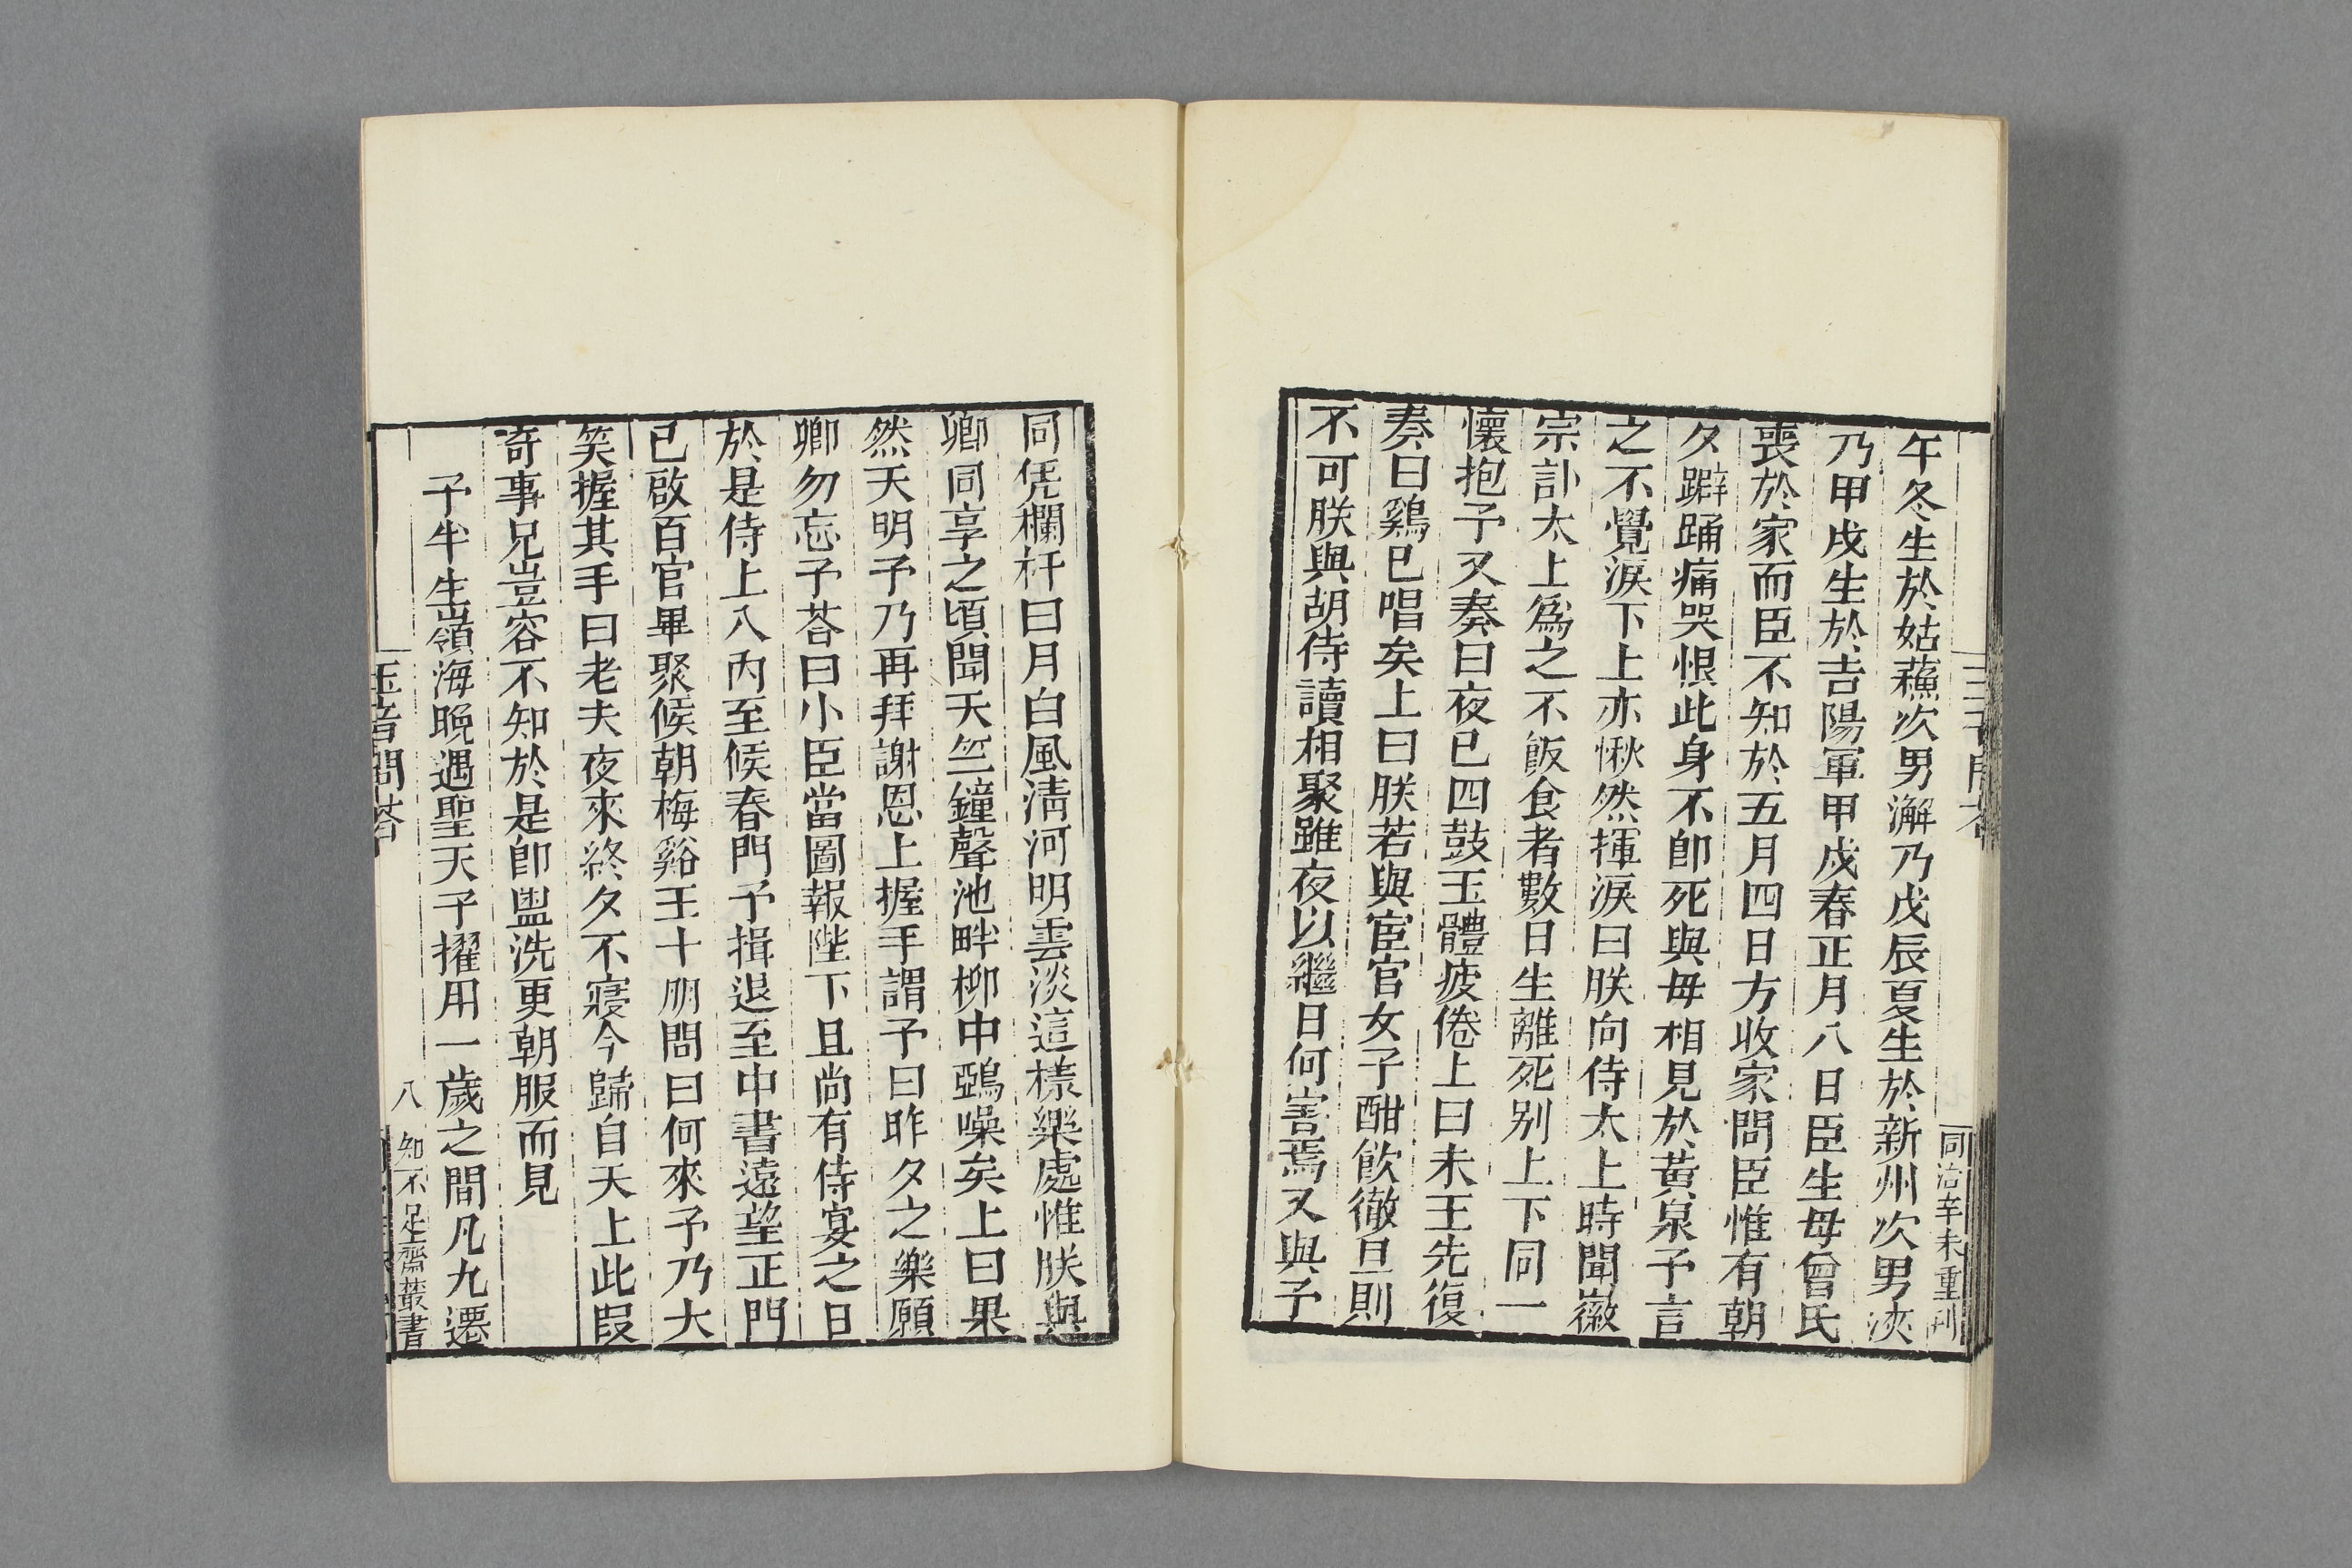 同治辛未重刊
午冬生於姑蘇次男澥乃戊辰夏生於新州次男浹
乃甲戌生於吉陽軍甲戌春正月八日臣生母曾氏
喪於家而臣不知於五月四日方收家問臣惟有朝
夕躃踊痛哭恨此身不卽死與毋相見於黃泉予言
之不覺淚下上亦愀然揮淚曰朕向侍太上時聞徽
宗訃太上爲之不飯食者數日生離死别上下同一
懷抱予又奏曰夜已四鼓玉體疲倦上曰未王先復
奏曰鷄已唱矣上曰朕若與宦官女子酣飲徹旦則
不可朕與胡侍讀相聚雖夜以繼日何害焉又與予
同凭欄杆曰月白風淸河明雲淡這樣樂處惟朕與
卿同享之頃聞天竺鐘聲池畔柳中鵶噪矣上曰果
然天明予乃再拜謝恩上握手謂予曰昨夕之樂願
卿勿忘予荅曰小臣當圖報陛下且尚有侍宴之日
於是侍上入內至候春門予揖退至中書遠望正門
已啟百官畢聚候朝梅谿王十朋問曰何來予乃大
笑握其手曰老夫夜來終夕不寢今歸自天上此叚
奇事兄豈容不知於是卽盥洗更朝服而見
予半生嶺海晚遇聖天子擢用一歲之間凡九遷
玉音問荅
八
知不足齋叢書